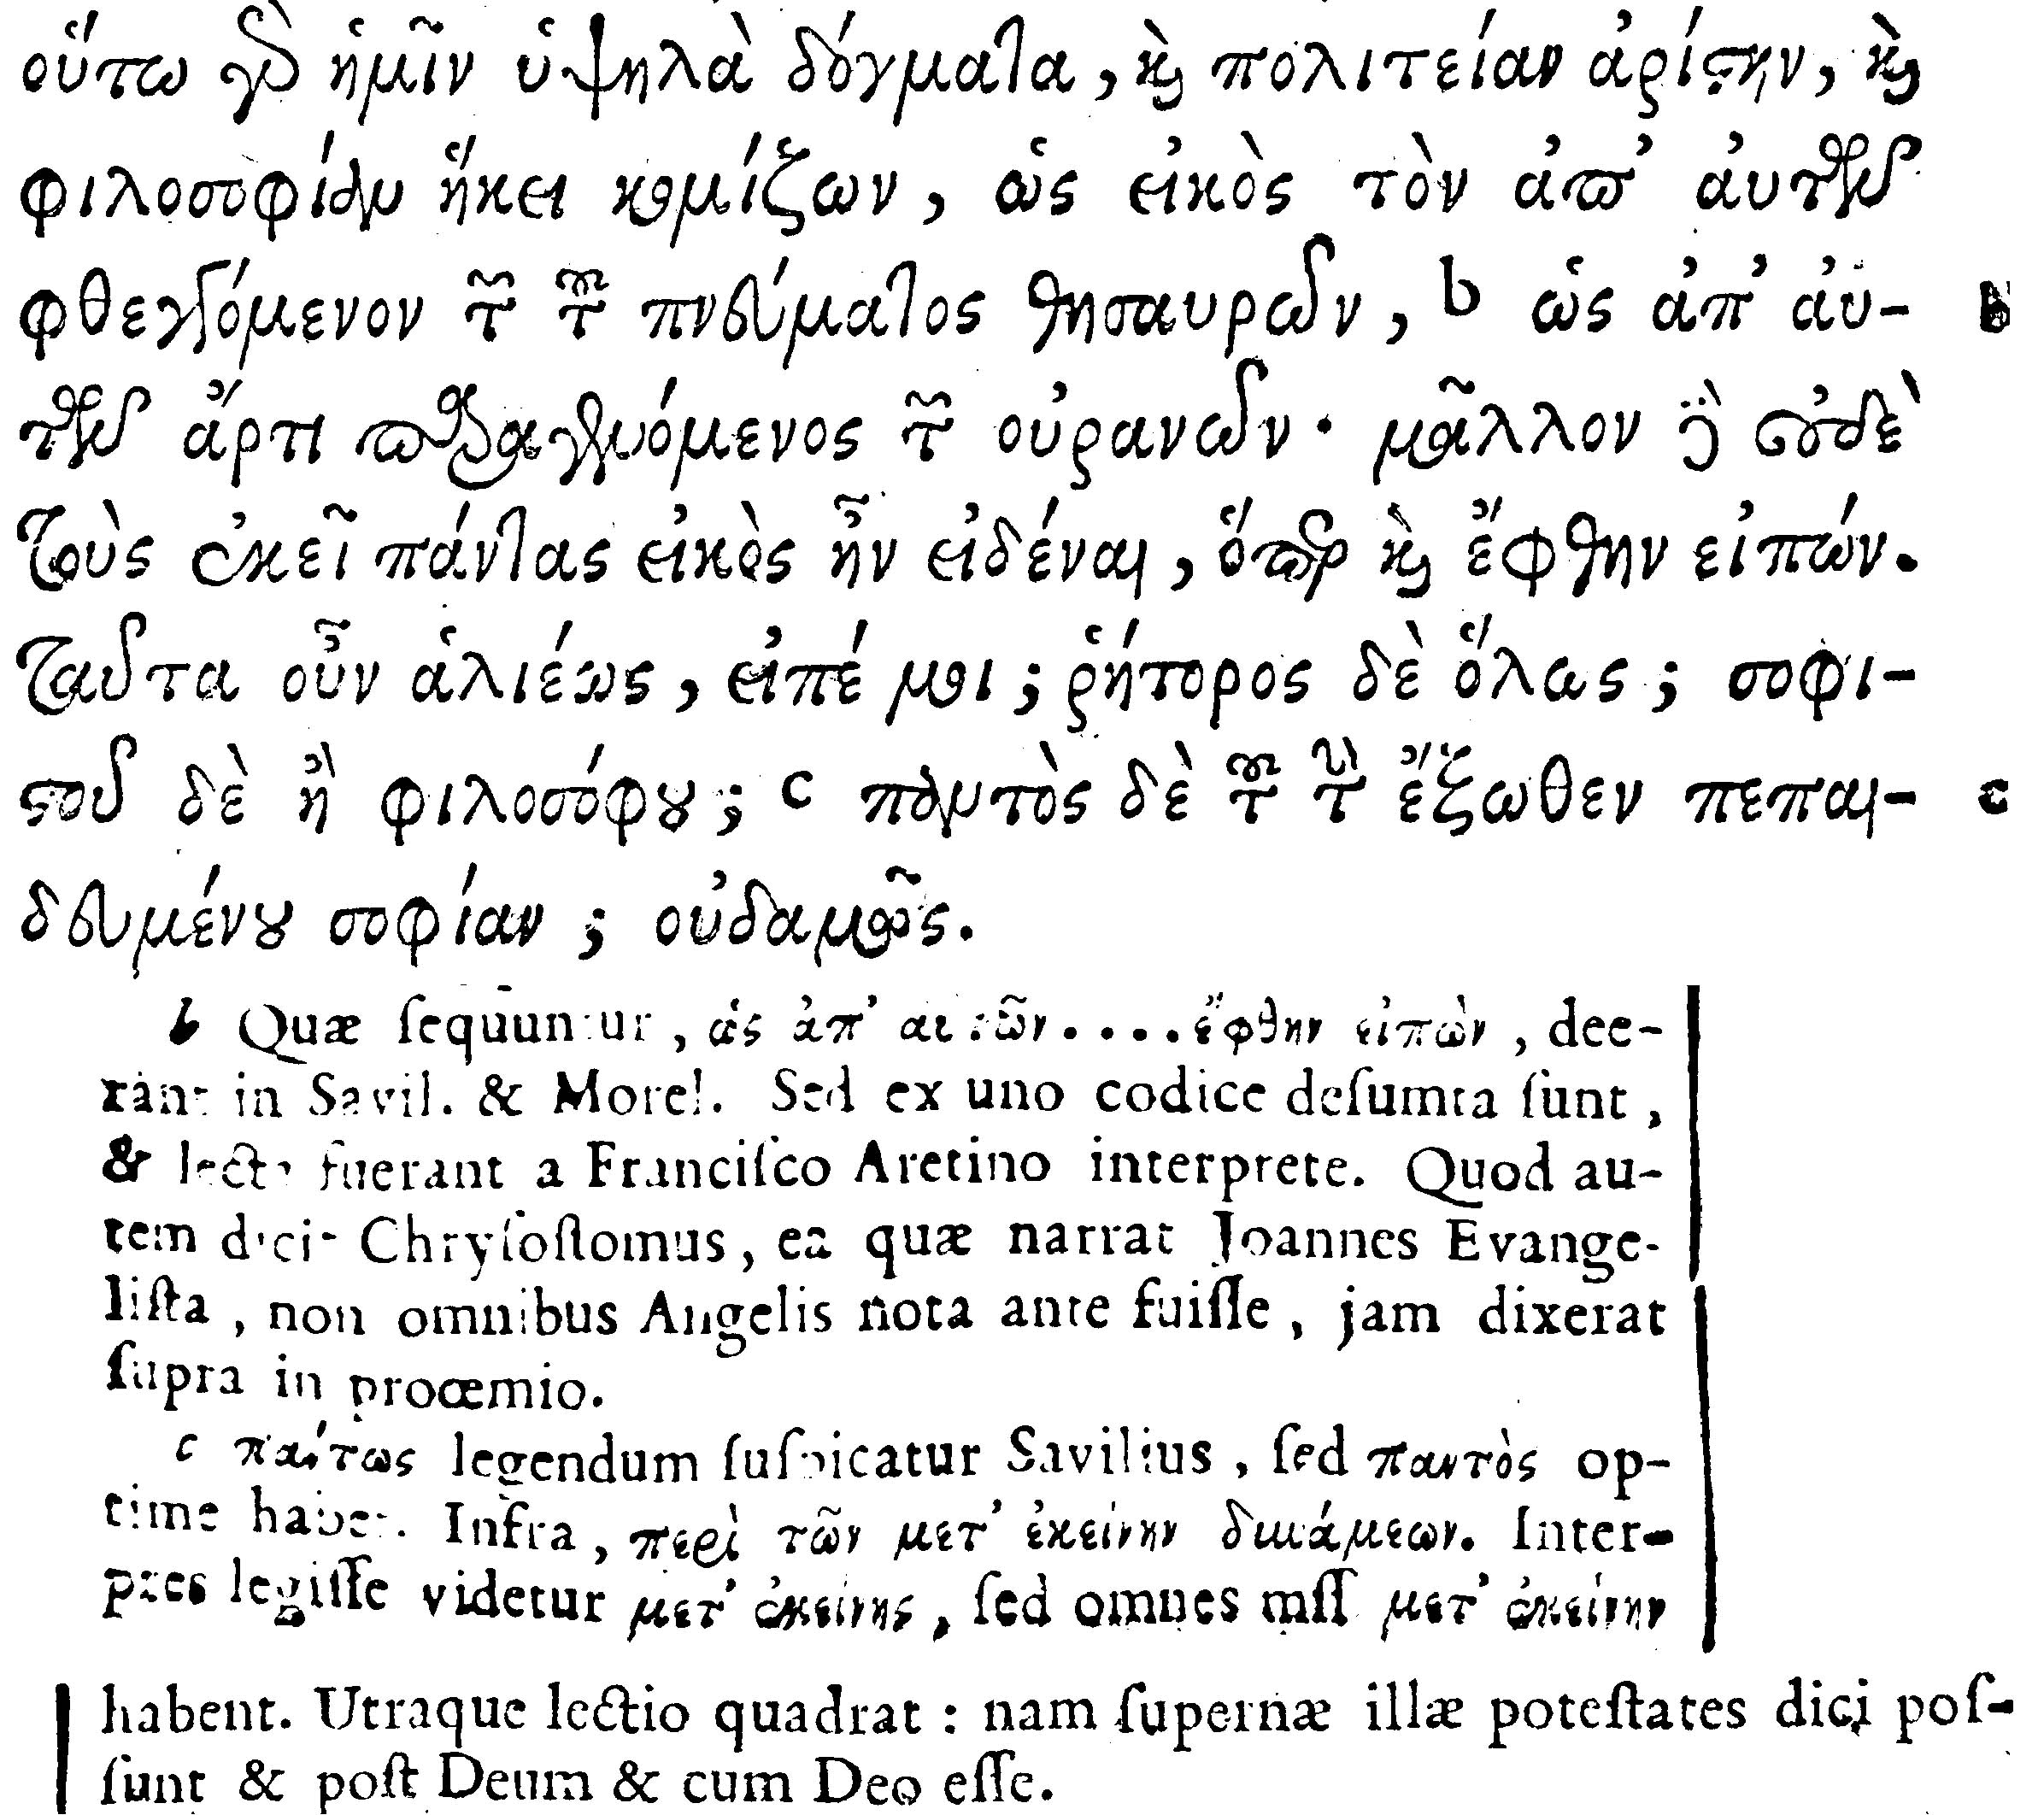 οὕτω γὰρ ἡμῖν ὑψηλὰ δόγματα, καὶ πολιτείαν ἀρίστην, καὶ
φιλοσοφίαν ἥκει κομίζων, ὡς εἰκὸς τὸν ἀπ' αὐτῶν
φθεγγόμενον τῶν τοῦ πνεύματος θησαυρῶν, b ὡς ἀπ' αὐ- b
τῶν ἄρτι παραγενόμενος τῶν οὐρανῶν· μᾶλλον δὲ οὐδὲ
τοὺς ἐκεῖ πάντας εἰκὸς ἦν εἰδέναι, ὅπερ καὶ ἔφθην εἰπών.
Ταῦτα οὖν ἁλιέως, εἰπέ μοι; ῥήτορος δὲ ὅλως; σοφι-
στοῦ δὲ ἢ φιλοσόφου; c παντὸς δὲ τοῦ τὴν ἔξωθεν πεπαι- c
δευμένου σοφίαν; οὐδαμῶς.
b Quæ ſequuntur, ὡς ἀπ' αὐτῶν.....ἔφθην εἰπὼν, dee-
rant in Savil. & Morel. Sed ex uno codice deſumta ſunt,
& lecta fuerant a Franciſco Aretino interprete. Quod au-
tem dicit Chryſoſtomus, ea quæ narrat Joannes Evange-
liſta, non omnibus Angelis nota ante fuiſſe, jam dixerat
ſupra in proœmio.
c πάντως legendum ſuſpicatur Savilius, ſed παντὸς op-
time habet. Infra, περὶ τῶν μετ' ἐκείνην δυνάμεων. Inter-
pres legiſſe videtur μετ' ἐκείνης, ſed omnes mſſ μετ' ἐκείνην
habent. Utraque lectio quadrat: nam ſupernæ illæ poteſtates dici poſ-
ſunt & poſt Deum & cum Deo eſſe.